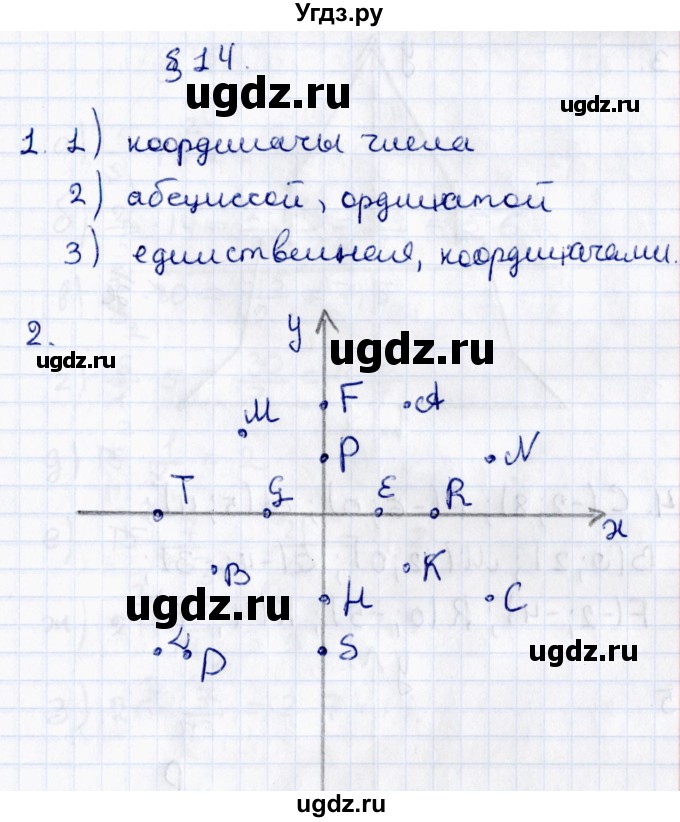 Угдз.ру
§ 14.
ugdz.ru
ugdz.ru
1. 1) координаты числа
2) абсциссой, ординатой
3) единственная, координатами.
2.
ugdz.ru
y
ugdz.ru
F A
M
P N
T G E R
x
B K
ugdz.ru
H C
L D S
ugdz.ru
ugdz.ru